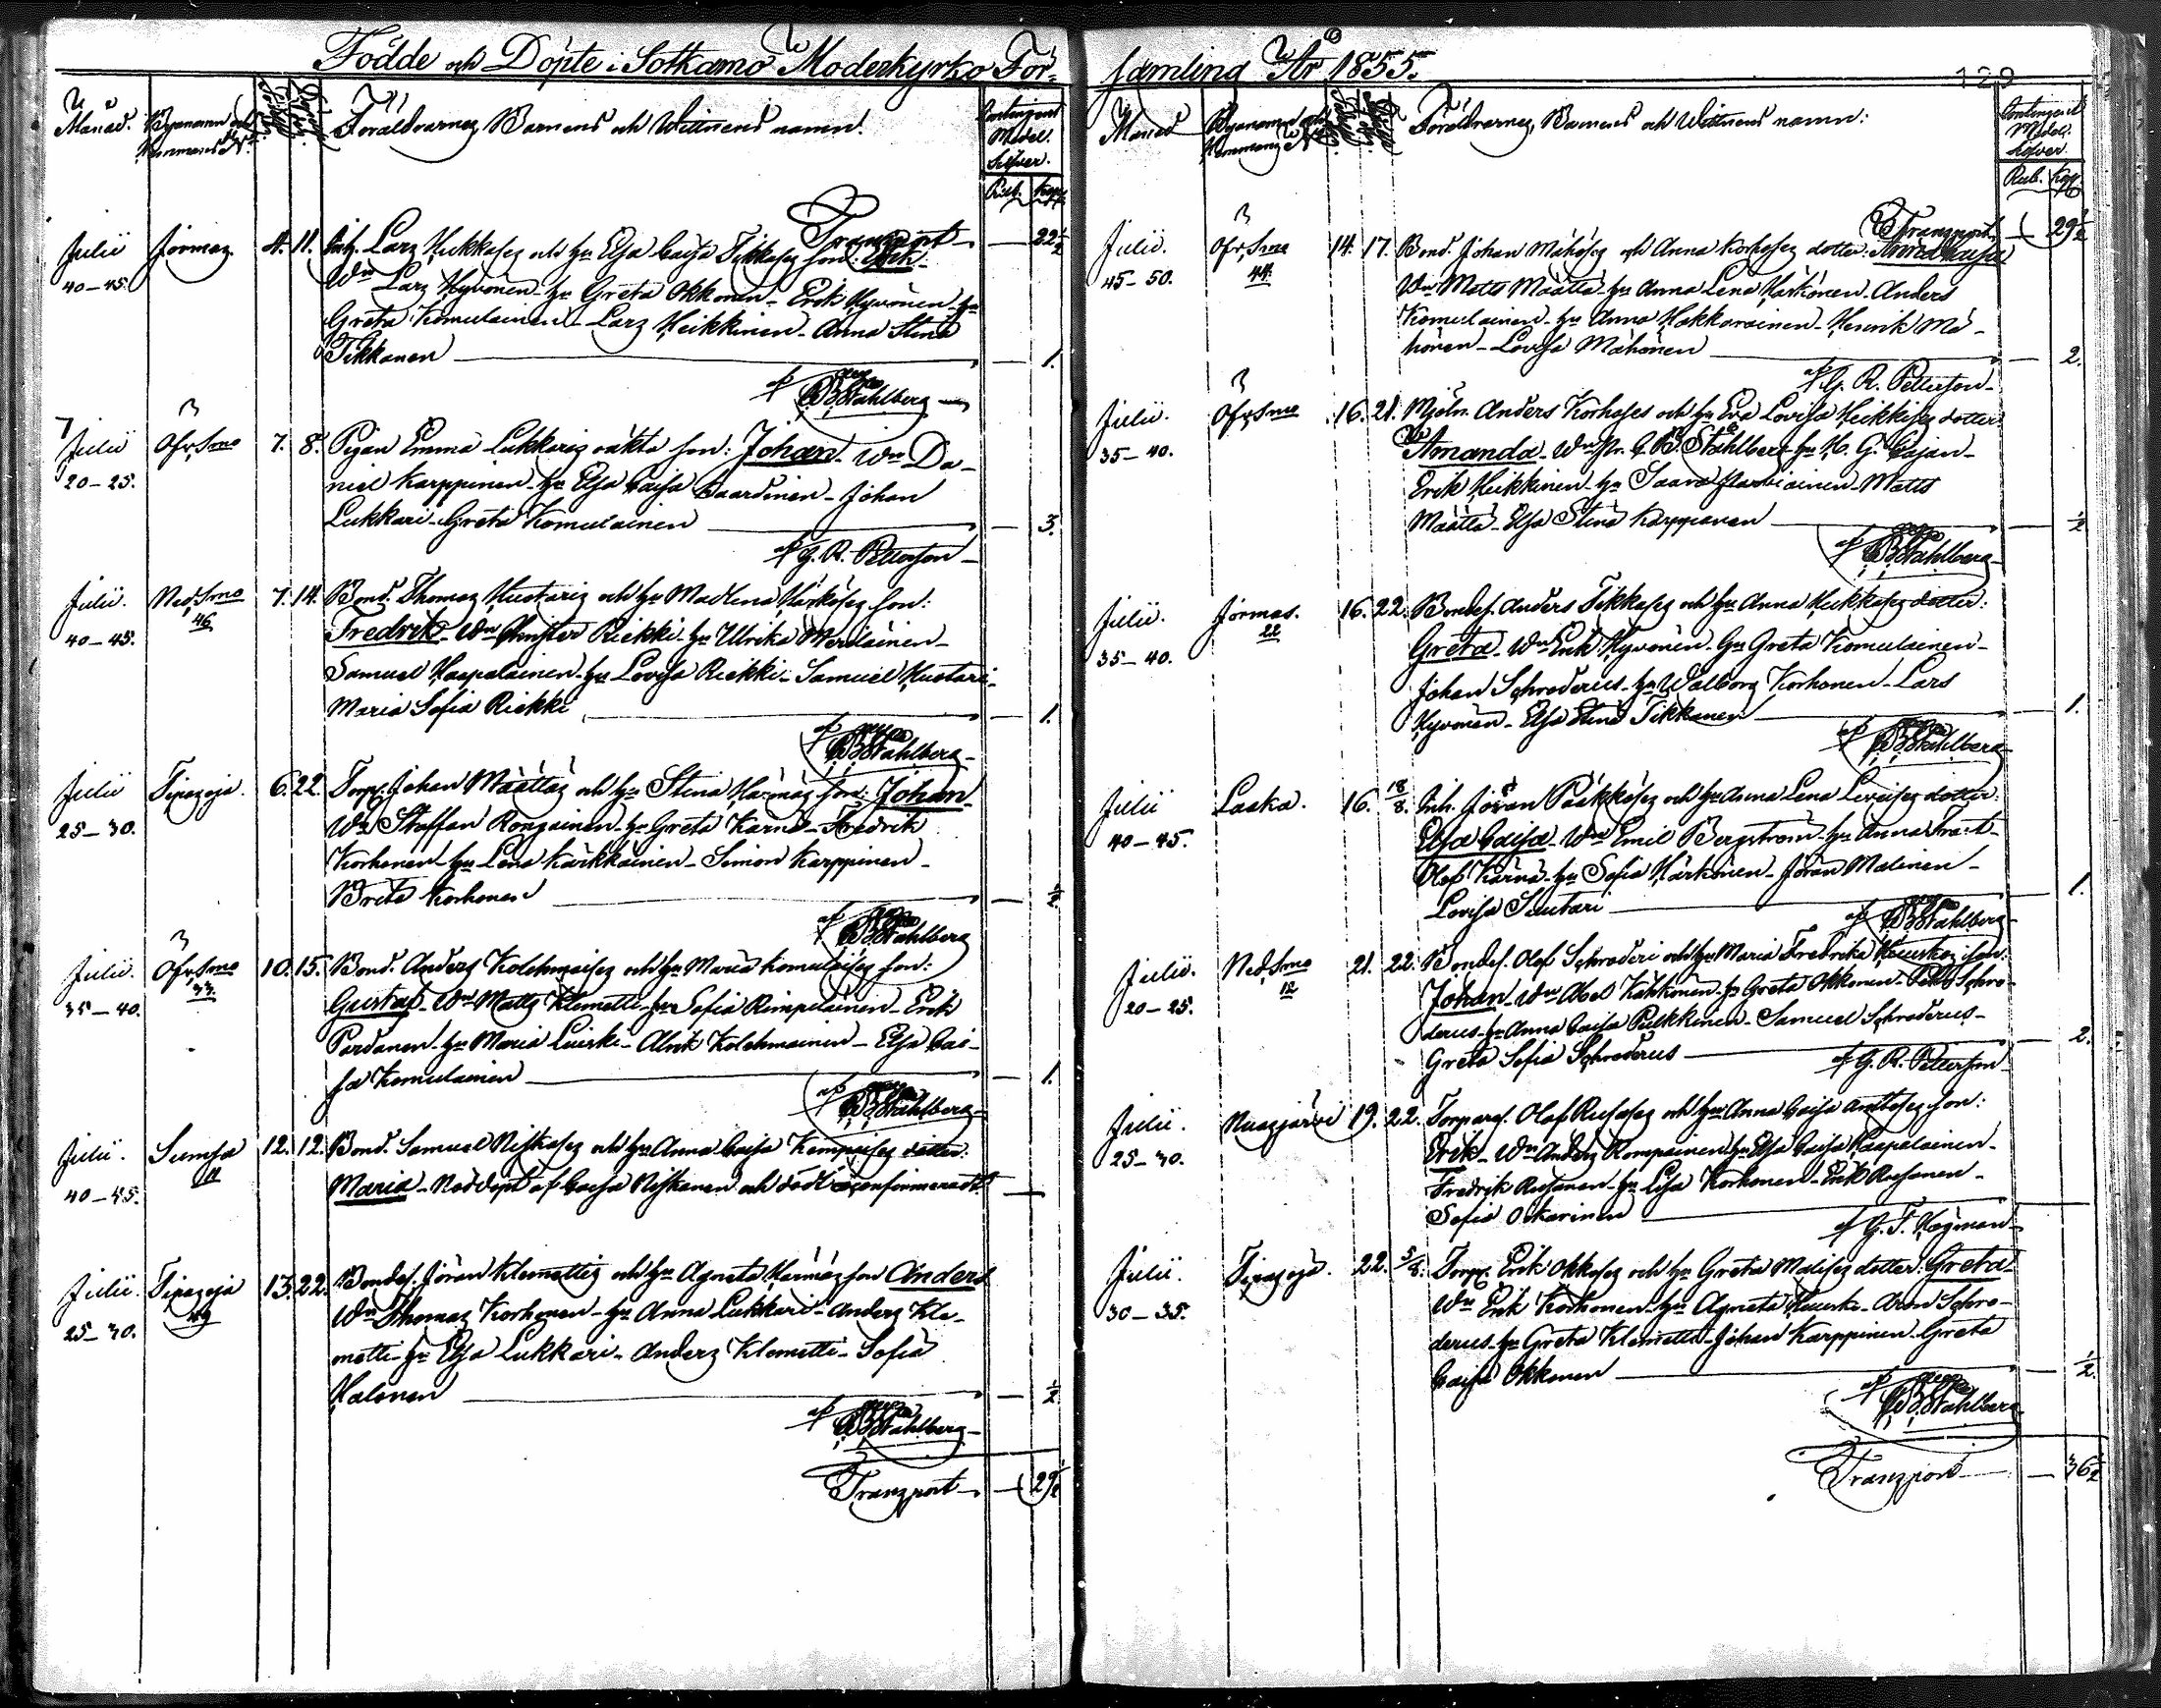 Födde och Döpte i Sotkamo Moderkyrko För-
Månad.
Byanamn och
Hemmans No.
Föräldrarnes, Barnens och Wittnens namn.
Contingent
Medel.
Silfver.
Rub. Kop.
Transport 22 1/2
Julii Jormas 4. 11. Inh. Lars Heikkises och hu Elsa Caisa Tikkases son: Erik
40-45. Wn Lars Hyvönen - hu Greta Okkonen - Erik Hyvönen - hu
Greta Komulainen - Lars Heikkinen - Anna Stina
Tikkanen 1.
af B. Ståhlberg
Julii Öfv. Smo 7. 8. Pigan Emma Lukkaris oäkta son: Johan. Wn Da-
20-25. niel Karppinen - hu Elsa Caisa - Johan
Lukkari - Greta Komulainen 3.
af G. R. Petterson
Julii. Ned. Smo 7. 14. Bond. Thomas Huotaris och hu Madlena Härköses son:
40-45. 46 Fredrik - Wn Riekki - hu Ulrika Meriläinen -
Samuel Haapalainen - hu Lovisa Riekki - Samuel Huotari -
Maria Sofia Riekki 1.
af B. Ståhlberg
Julii Tipasoja. 6. 22. Torp. Johan Määttäs och hu Stina Härmäs son: Johan
25-30. Wn Staffan Rongainen - hu Greta Kärnä - Fredrik
Korhonen - hu Lena Kärkkäinen - Simon Karppinen -
Brita Korhonen 1/2
af B. Ståhlberg
Julii. Öfv. Smo 10. 15. Bond. Anders Kolehmaises och hu Maria Komulaises son:
35-40. 33 Gustaf - Wn Matts Klemetti - hu Sofia Rimpiläinen - Erik
Pardanen - hu Maria Leuski - Alrik Kolehmainen - Elsa Cai-
sa Komulainen 1.
af B. Ståhlberg
Julii. Sumsa 12. 12. Bond. Samuel Niskases och hu Anna Caisa Kemppises dotter:
40-45. 11 Maria - Nöddöpt af Caisa Niskanen och död oconfirmeradt
Julii. Tipasoja 13. 22. Bondes. Jöran Klemettis och hu Agneta Härmäs son Anders
25-30. 49 Wn Thomas Korhonen - hu Anna Lukkari - Anders Kle-
metti - hu Elsa Lukkari - Anders Klemetti - Sofia
Halonen 1/2
af B. Ståhlberg
Transport 29 1/2
samling År 1855.
129
Månad
Byanamn och
Hemmans No
Föräldrarnes, Barnens och Wittnens namn:
Contingent
Medel.
Silfver.
Rub. Kop
Transport 29 1/2
Julii. Öfv. Smo 14. 17. Bond. Johan Mähöses och Anna Korhoses dotter: Anna Caisa
45-50. 44. Wn Matts Määttä - hu Anna Lena Härkönen - Anders
Komulainen - hu Anna Hakkarainen - Henrik Mä-
hönen - Lovisa Mähönen 2.
af G. R. Petterson
Julii. Öfv. Smo 16. 21. Mjöln. Anders Korhoses och hu Eva Lovisa Heikkises dotter:
35-40. Amanda - Wn B. Ståhlberg - hu H. G. Cajan -
Erik Heikkinen - hu Saara - Matts
Määttä - Elsa Stina Karppanen 1/2
af B. Ståhlberg
Julii. Jormas. 16. 22. Bondes. Anders Tikkases och hu Anna Heikkises dotter:
35-40. 22 Greta - Wn Erik Hyvönen - hu Greta Komulainen -
Johan Schroderus - hu Walborg Korhonen - Lars
Hyvönen - Elsa Stina Tikkanen 1.
af B. Ståhlberg
Julii Laaka. 16. 18/8. Inh. Jöran Pääkköses och hu Anna Lena Leveises dotter:
40-45. Elsa Caisa - Wn Emil Bergström - hu Anna -
Olof Kärnä - hu Sofia Härkönen - Jöran Malinen -
Lovisa Suutari 1.
af B. Ståhlberg
Julii. Ned. Smo 21. 22. Bondes. Olof Schroderi och hu Maria Fredrika Heuskas son:
20-25. 12 Johan - Wn Abel Kähkönen - hu Greta Okkonen - Schro-
derus - hu Anna Caisa Pulkkinen - Samuel Schroderus -
Greta Sofia Schroderus 2.
af G. R. Petterson
Julii. Nuasjärvi 19. 22. Torpares. Olof Rusases och hu Anna Caisa son:
25-30. Erik - Wn Anders Rompainen - hu Elsa Caisa Haapalainen -
Fredrik Rusanen - hu Lisa Korhonen - Erik Rusanen -
Sofia Oikarinen
af G. T. Hagman
Julii. Tipasoja. 22. 5/8. Torp. Erik Okkoses och hu Greta Malises dotter: Greta
30-35. Wn Erik Korhonen - hu Agneta - Aron Schro-
derus - hu Greta Klemetti - Johan Karppinen - Greta
Caisa Okkonen 1/2.
af B. Ståhlberg
Transport 36 1/2